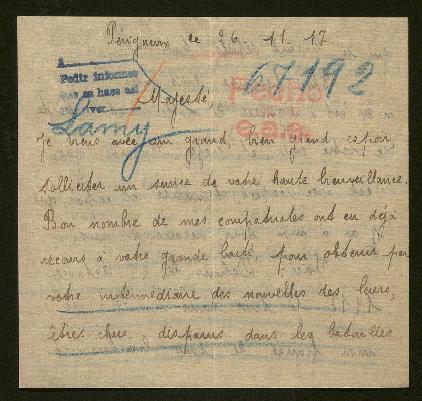 Périgueux, le 26. 11. 17
A
Pedir informes
67192
Pedido
e.a.a.
Majesté,
Lamy
Je viens avec un grand, bien grand espoir
solliciter un service de votre haute bienveillance.
Bon nombre de mes compatriotes ont eu déjà
recours à votre grande bonté, pour obtenir par
votre intermédiaire des nouvelles des leurs,
êtres chers disparus dans les batailles